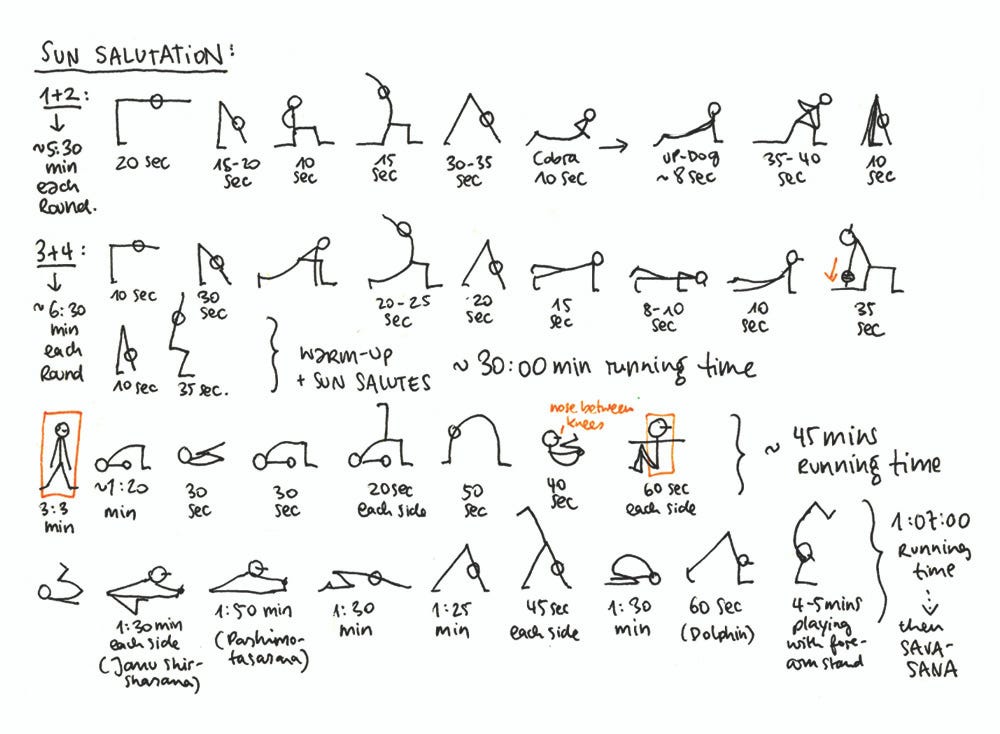 SUN SALUTATION:
1+2:
~5:30
min
each
Round.
20 sec
15-20
sec
10
sec
15
sec
30-35
sec
Cobra
10 sec
UP-DOG
~8 sec
35-40
sec
10
sec
3+4:
~6:30
min
each
Round
10 sec
30
sec
20-25
sec
20
sec
15
sec
8-10
sec
10
sec
35
sec
10 sec
35 sec.
WARM-UP
+ SUN SALUTES
~30:00 min running time
3:3
min
~1:20
min
30
sec
30
sec
20 sec
each side
50
sec
nose between
knees
40
sec
60 sec
each side
~ 45 mins
running time
1:30 min
each side
(Janu Shir-
shasana)
1:50 min
(Pashimo-
tasasana)
1:30
min
1:25
min
45 sec
each side
1:30
min
60 sec
(Dolphin)
4-5 mins
playing
with fore-
arm stand
1:07:00
Running
time
then
SAVA-
SANA